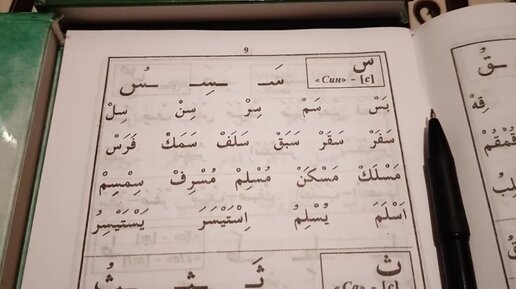 9
س سَـ ـسِـ ـسُ
«Син» - [с]
بَسْ سَمْ سِرْ سِنْ سِلْ
سَفَرْ سَقَرْ سَبَقْ سَلَفْ سَمَكْ فَرَسْ
مَسْلَكْ مَسْكَنْ مُسْلِمْ مُسْرِفْ سِمْسِمْ
اَسْلَمَ يُسْلِمُ اِسْتَيْسَرَ يَسْتَيْسِرُ
ث ثَـ ـثِـ ـثُ